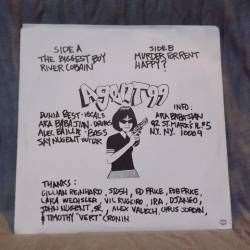 SIDE A
THE BIGGEST BOY
RIVER COBAIN
SIDE B
MURDER FOR RENT
HAPPY?
AGENT 99
DUNIA BEST - VOCALS
ARA BABAJIAN - DRUMS
ALEC BAILLIE - BASS
JAY NUGENT GUITAR
INFO:
ARA BABAJIAN
82 ST. MARKS PL. #5
N.Y. N.Y.
10009
THANKS:
GILLIAN REINHARD, JOSH, ED PRICE, ROB PRICE,
LARA WECHSLER, VIC RUGGIERO, IRA, DJANGO,
JOHN NUGENT, SR., ALEX VALECH, CHRIS JORDAN,
TIMOTHY "VERT" CRONIN